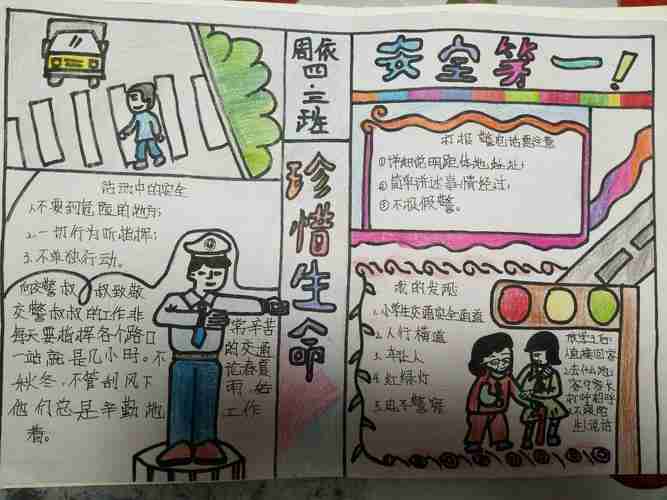 周依
四.三班
珍惜生命
安全第一!
活动中的安全
1.不要到危险的地方;
2.一切行为听指挥;
3.不单独行动。
向交警叔叔致敬
交警叔叔的工作非常辛苦
每天要指挥各个路口的交通
一站就是几小时。不论春夏
秋冬,不管刮风下雨,始
他们总是辛勤地工作
着。
打报警电话要注意
①详细说明
②简单讲述事情经过;
③不报假警。
我的发现
1.小学生交通安全通道
2.人行横道
3.车让人
4.红绿灯
5.电子警察
放学后:
直接回家
去什么地
客可家长
打呼招呼
不跟陌
生说话